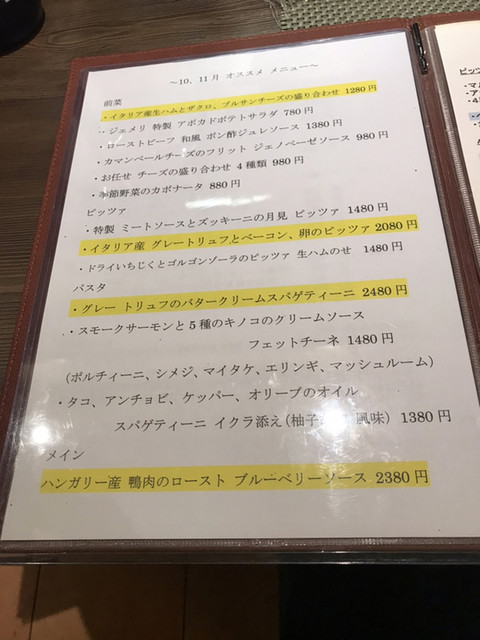 ~10、11月 オススメ メニュー~
前菜
・イタリア産生ハムとザクロ、ブルサンチーズの盛り合わせ 1280円
・ジェメリ 特製 アボカドポテトサラダ 780円
・ローストビーフ 和風 ポン酢ジュレソース 1380円
・カマンベールチーズのフリット ジェノベーゼソース 980円
・お任せ チーズの盛り合わせ 4種類 980円
・季節野菜のカポナータ 880円
ピッツァ
・特製 ミートソースとズッキーニの月見 ピッツァ 1480円
・イタリア産 グレートリュフとベーコン、卵のピッツァ 2080円
・ドライいちじくとゴルゴンゾーラのピッツァ 生ハムのせ 1480円
パスタ
・グレー トリュフのバタークリームスパゲティーニ 2480円
・スモークサーモンと5種のキノコのクリームソース
フェットチーネ 1480円
(ポルティーニ、シメジ、マイタケ、エリンギ、マッシュルーム)
・タコ、アンチョビ、ケッパー、オリーブのオイル
スパゲティーニ イクラ添え(柚子 風味) 1380円
メイン
ハンガリー産 鴨肉のロースト ブルーベリーソース 2380円
ピッツ
・マル
・ア
・4